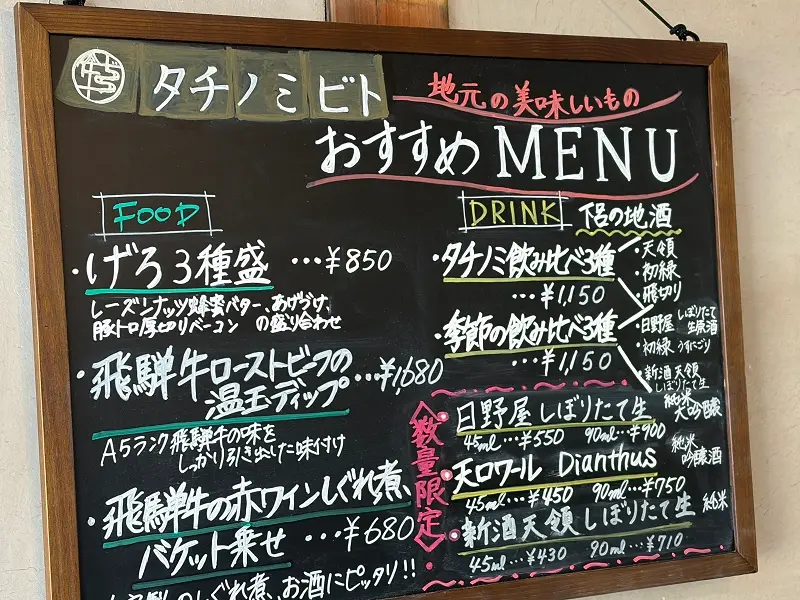 タチノミビト
地元の美味しいもの
おすすめ MENU
FOOD
・げろ3種盛 …¥850
レーズンナッツ蜂蜜バター、あげづけ、
豚トロ厚切りベーコン の盛り合わせ
・飛騨牛ローストビーフの
温玉ディップ …¥1,680
A5ランク飛騨牛の味を
しっかり引き出した味付け
・飛騨牛の赤ワインしぐれ煮、
バケット乗せ …¥680
しぐれ煮、お酒にピッタリ!!
DRINK 下呂の地酒
・タチノミ飲み比べ3種
…¥1,150
・天領
・初緑
・飛切り
・季節の飲み比べ3種
…¥1,150
・日野屋 しぼりたて
生原酒
・初緑 うすにごり
・新酒天領
しぼりたて生
数量限定
日野屋しぼりたて生 純米
大吟醸
45ml…¥550 90ml…¥900
天ロワール Dianthus 純米
吟醸酒
45ml…¥450 90ml…¥750
新酒天領しぼりたて生 純米
45ml…¥430 90ml…¥710